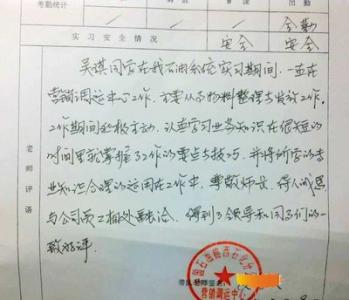 考勤统计
出勤
全勤
实习安全情况
安全
安全
吴琪同学在我石油系统实习期间，一直在
营销调运中心工作，主要从事物料整理与发放工作。
工作期间积极主动，认真学习业务知识在很短的
时间里就掌握了工作的要点与技巧，并将所学的专
业知识合理的运用在工作中，尊敬师长，待人诚恳
与公司员工相处融洽，得到了领导和同事们的
一致好评。
老师评语
营销调运中心